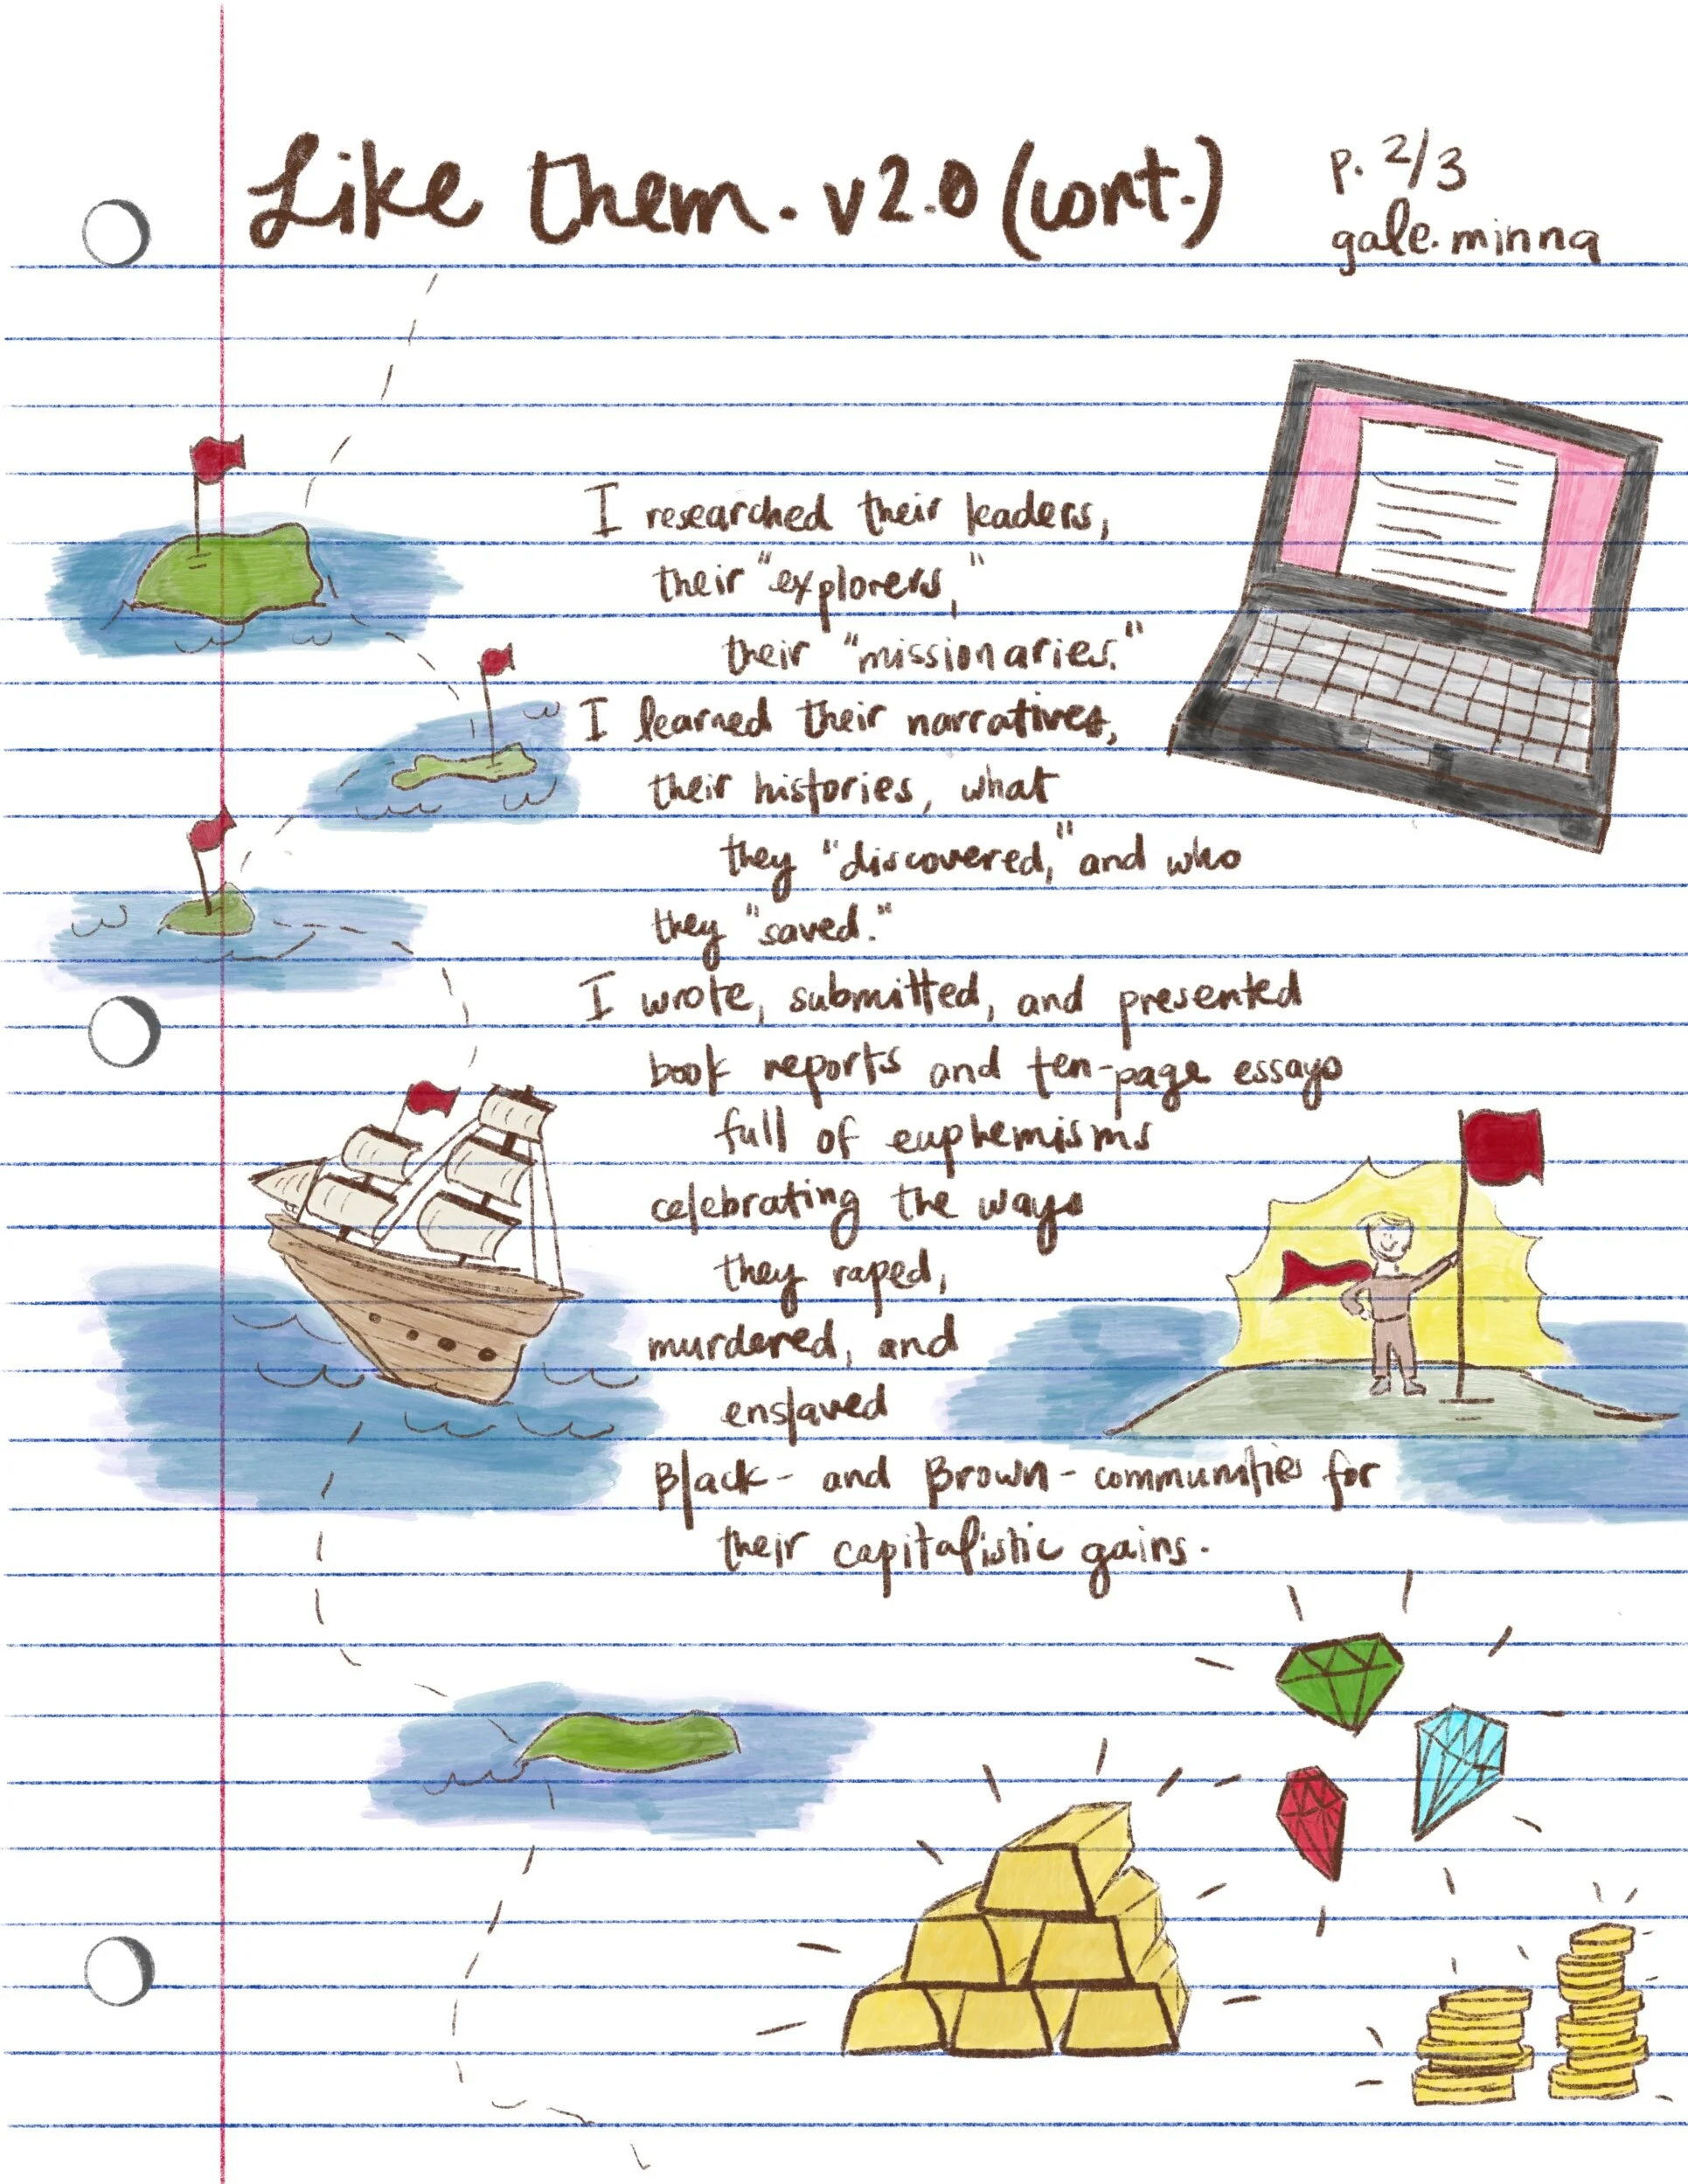 Like them. v2.0 (cont.)
p. 2/3
gale.minna
I researched their leaders,
their "explorers,"
their "missionaries."
I learned their narratives,
their histories, what
they "discovered," and who
they "saved."
I wrote, submitted, and presented
book reports and ten-page essays
full of euphemisms
celebrating the ways
they raped,
murdered, and
enslaved
Black- and Brown- communities for
their capitalistic gains.